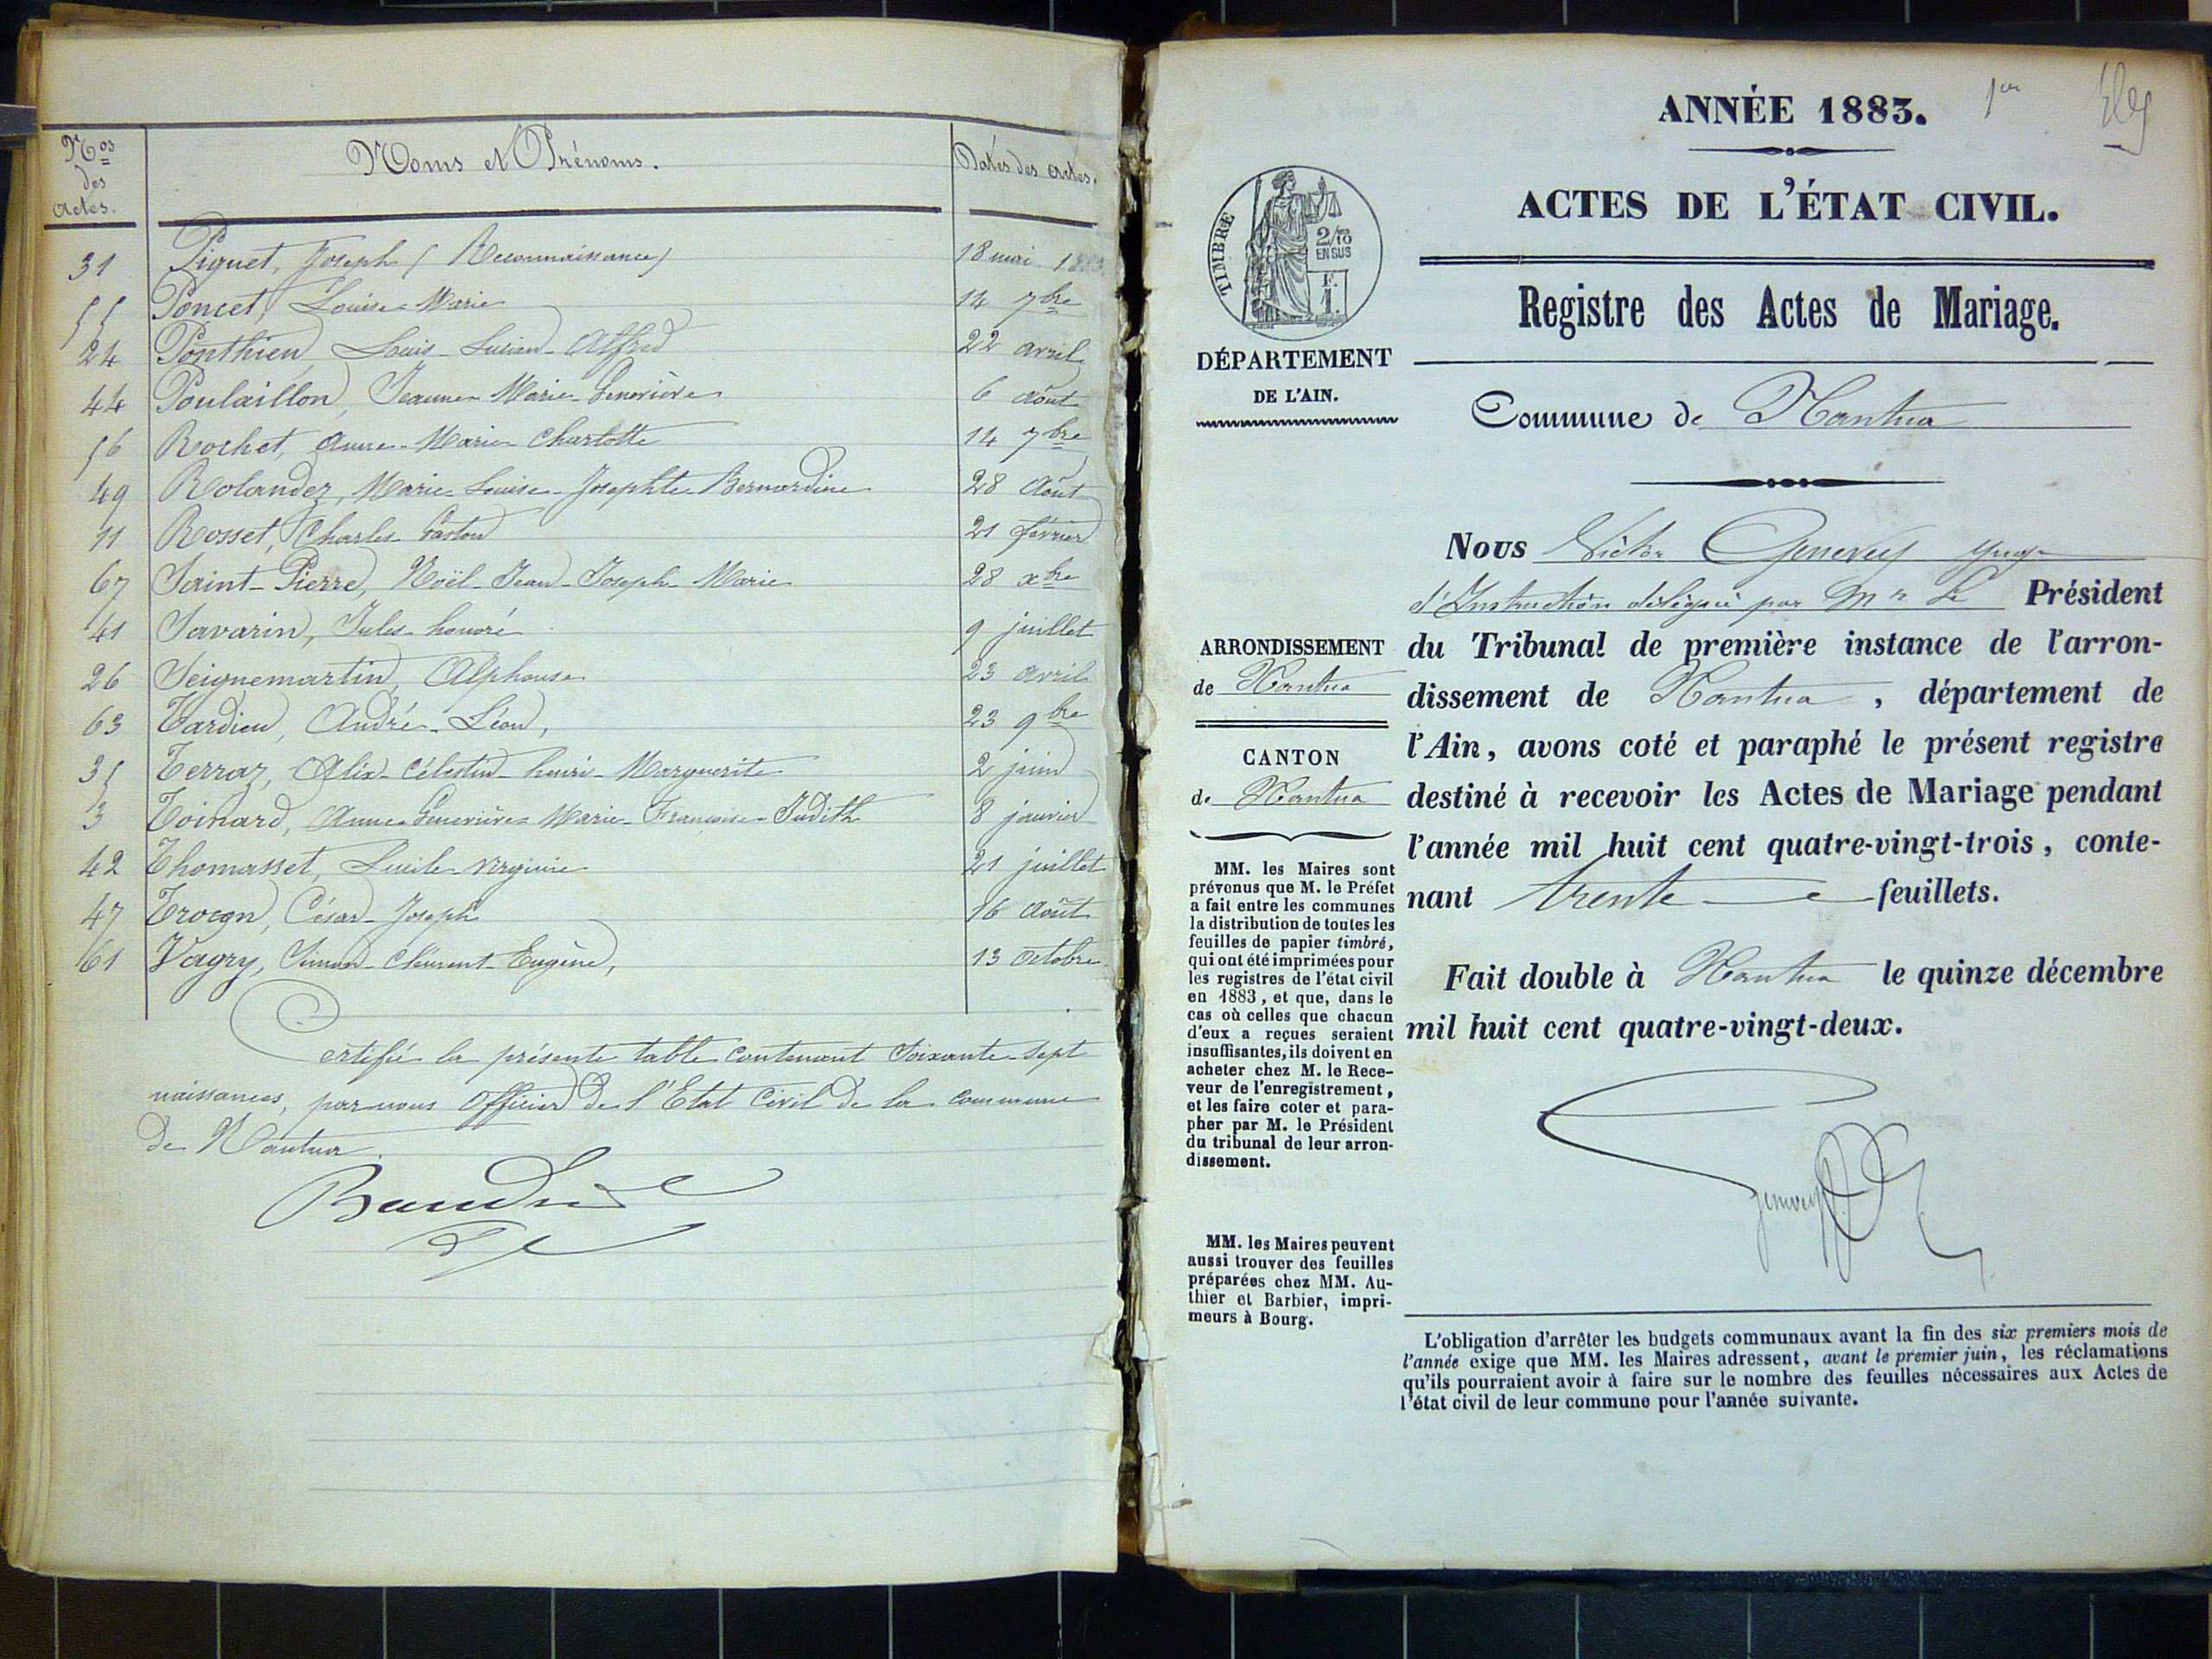 Nos des actes.
Noms et Prénoms.
Dates des actes.
31 Piguet, Joseph (Reconnaissance) 18 mai 1883
55 Poncet, Louise-Marie 14 7bre
24 Ponthieu, Louis-Lucien-Alfred 22 avril
44 Poulaillon, Jeanne-Marie-Geneviève 6 août
56 Rochet, Anne-Marie-Charlotte 14 7bre
49 Rolandez, Marie-Louise-Josephte-Bernardine 28 Août
11 Rosset, Charles-Gaston 21 février
67 Saint-Pierre, Noël-Jean-Joseph-Marie 28 xbre
41 Savarin, Jules-honoré 9 juillet
26 Seignemartin, Alphonse 23 avril
63 Tardieu, André-Léon, 23 9bre
35 Terraz, Alix-Célestin-henri-Marguerite 2 juin
3 Toinard, Anne-Geneviève-Marie-Françoise-Judith 8 janvier
42 Thomasset, Lucile-Virginie 21 juillet
47 Trocon, César-Joseph 16 Août
61 Vagry, Simon-Clément-Eugène, 13 octobre
Certifié la présente table contenant Soixante-sept
naissances, par nous Officier de l'Etat Civil de la commune
de Nantua.
1er
ANNÉE 1883.
ACTES DE L'ÉTAT CIVIL.
Registre des Actes de Mariage.
TIMBRE
2/10 EN SUS
F. 1.
DÉPARTEMENT
DE L'AIN.
Commune de Nantua
Nous Victor Genevey Juge
d'Instruction délégué par Mr Le Président
du Tribunal de première instance de l'arron-
dissement de Nantua, département de
l'Ain, avons coté et paraphé le présent registre
destiné à recevoir les Actes de Mariage pendant
l'année mil huit cent quatre-vingt-trois, conte-
nant trente feuillets.
Fait double à Nantua le quinze décembre
mil huit cent quatre-vingt-deux.
Genevey
ARRONDISSEMENT
de Nantua
CANTON
de Nantua
MM. les Maires sont
prévenus que M. le Préfet
a fait entre les communes
la distribution de toutes les
feuilles de papier timbré,
qui ont été imprimées pour
les registres de l'état civil
en 1883, et que, dans le
cas où celles que chacun
d'eux a reçues seraient
insuffisantes, ils doivent en
acheter chez M. le Rece-
veur de l'enregistrement,
et les faire coter et para-
pher par M. le Président
du tribunal de leur arron-
dissement.
MM. les Maires peuvent
aussi trouver des feuilles
préparées chez MM. Au-
thier et Barbier, impri-
meurs à Bourg.
L'obligation d'arrêter les budgets communaux avant la fin des six premiers mois de
l'année exige que MM. les Maires adressent, avant le premier juin, les réclamations
qu'ils pourraient avoir à faire sur le nombre des feuilles nécessaires aux Actes de
l'état civil de leur commune pour l'année suivante.